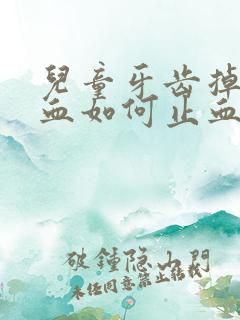 兒童牙齿掉
血如何止血
破鍾隐山門
未经同意禁止转载